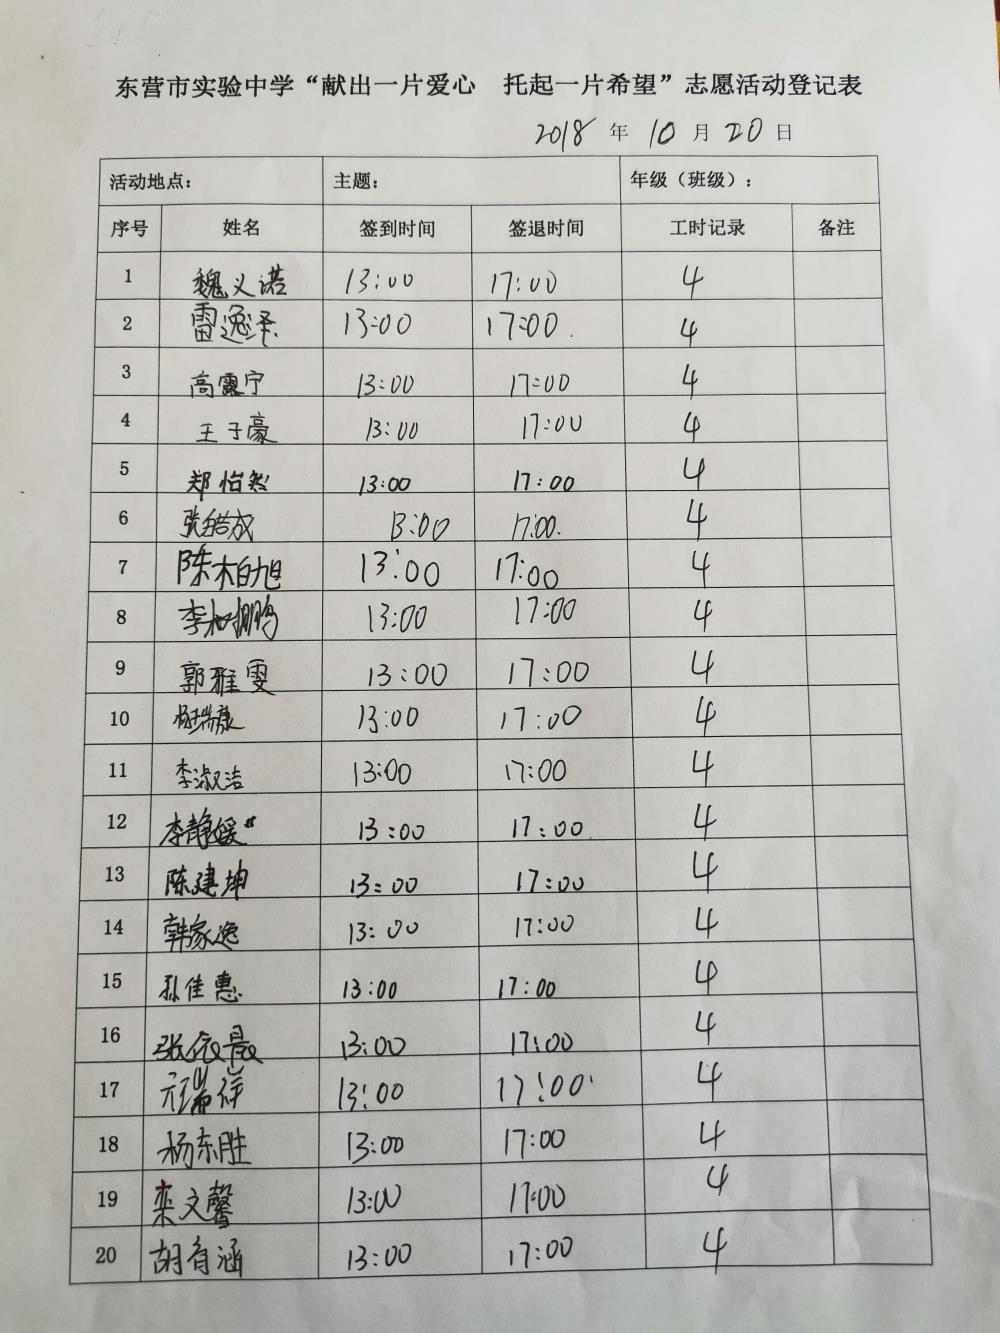 东营市实验中学“献出一片爱心 托起一片希望”志愿活动登记表
2018 年 10 月 20 日
活动地点： 主题： 年级（班级）：
序号 姓名 签到时间 签退时间 工时记录 备注
1 魏义诺 13:00 17:00 4
2 雷逸泽 13:00 17:00 4
3 高靈宁 13:00 17:00 4
4 王子豪 13:00 17:00 4
5 郑怡然 13:00 17:00 4
6 张皓成 13:00 17:00 4
7 陈柏旭 13:00 17:00 4
8 李 13:00 17:00 4
9 郭雅雯 13:00 17:00 4
10 瑞康 13:00 17:00 4
11 李淑洁 13:00 17:00 4
12 李静媛 13:00 17:00 4
13 陈建坤 13:00 17:00 4
14 韩家逸 13:00 17:00 4
15 孙佳惠 13:00 17:00 4
16 张依晨 13:00 17:00 4
17 瑞祥 13:00 17:00 4
18 杨东胜 13:00 17:00 4
19 栾文馨 13:00 17:00 4
20 胡有涵 13:00 17:00 4